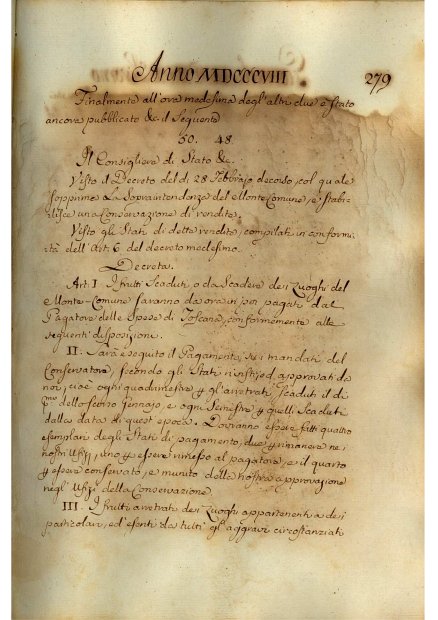 Anno MDCCCVIII
279
Finalmente all'ora medesima degl'altri due è stato
ancora pubblicato &c. il seguente
50. 48.
Il Consigliere di Stato &c.
Visto il Decreto del dì 28 Febbrajo decorso, col quale
sopprime La Sopraintendenza del Monte Comune, e stabi-
lisce una Conservazione di rendite.
Visto gli Stati di dette rendite, compilati in conformi-
tà dell'Art. 6 del decreto medesimo.
Decreta.
Art. I. I frutti Scaduti, o da Scadere dei Luoghi del
Monte-Comune saranno da ora in poi pagati dal
Pagatore delle Spese di Toscana, conformemente alle
seguenti disposizioni.
II. Sarà eseguito il Pagamento, sui mandati del
Conservatore, secondo gli Stati rivisti, ed approvati da
noi, cioè ogni quadrimestre p gl'arretrati, scaduti il dì
p.mo dello scorso Gennajo, e ogni Semestre p quelli Scaduti
dalla data di quest'epoca. Dovranno essere fatti quattro
esemplari degli Stati di pagamento, due p rimanere nei
nostri Ufizj, uno p essere rimesso al pagatore, e il quarto
p essere conservato, e munito della nostra approvazione
negl'Ufizi della Conservazione.
III. I frutti arretrati dei Luoghi appartenenti a dei
particolari, ed esenti da tutti gli aggravi circostanziati